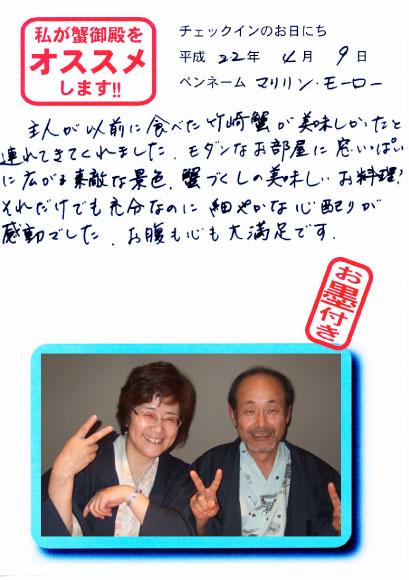 私が蟹御殿を
オススメ
します!!
チェックインのお日にち
平成 22年 4月 9日
ペンネーム マリリン・モーロー
主人が以前に食べた竹崎蟹が美味しかったと
連れてきてくれました。モダンなお部屋に窓いっぱい
に広がる素敵な景色、蟹づくしの美味しいお料理!
それだけでも充分なのに細やかな心配りが
感動でした。お腹も心も大満足です。
お墨付き